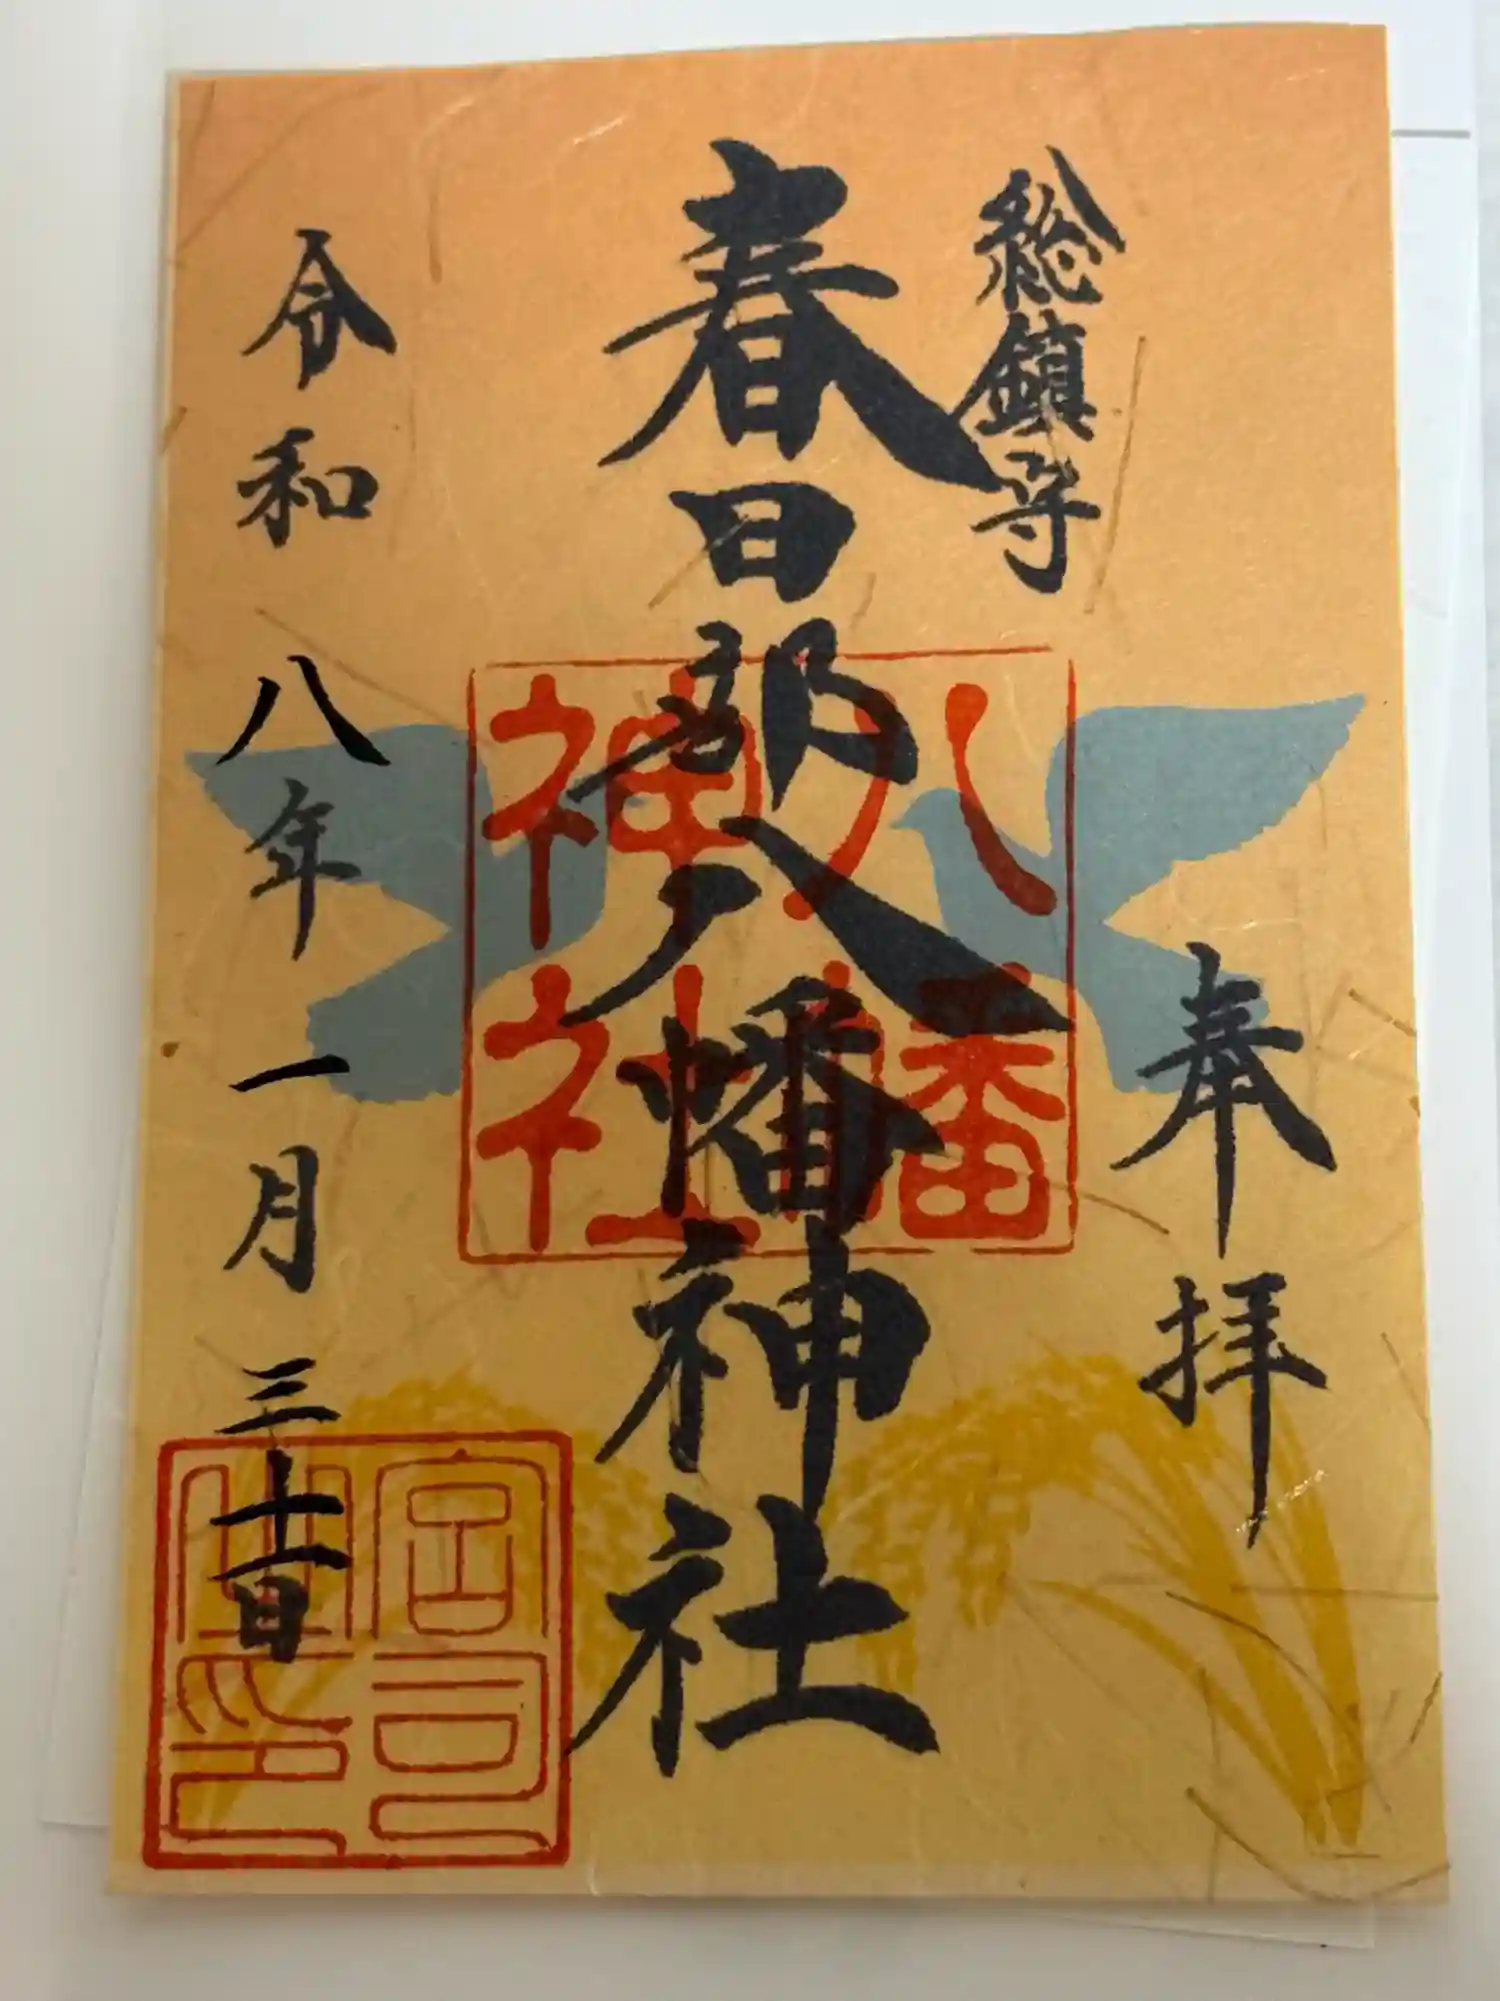 奉拝
総鎮守
春日部八幡神社
令和八年一月三十一日
八幡
神社
宮司
之印